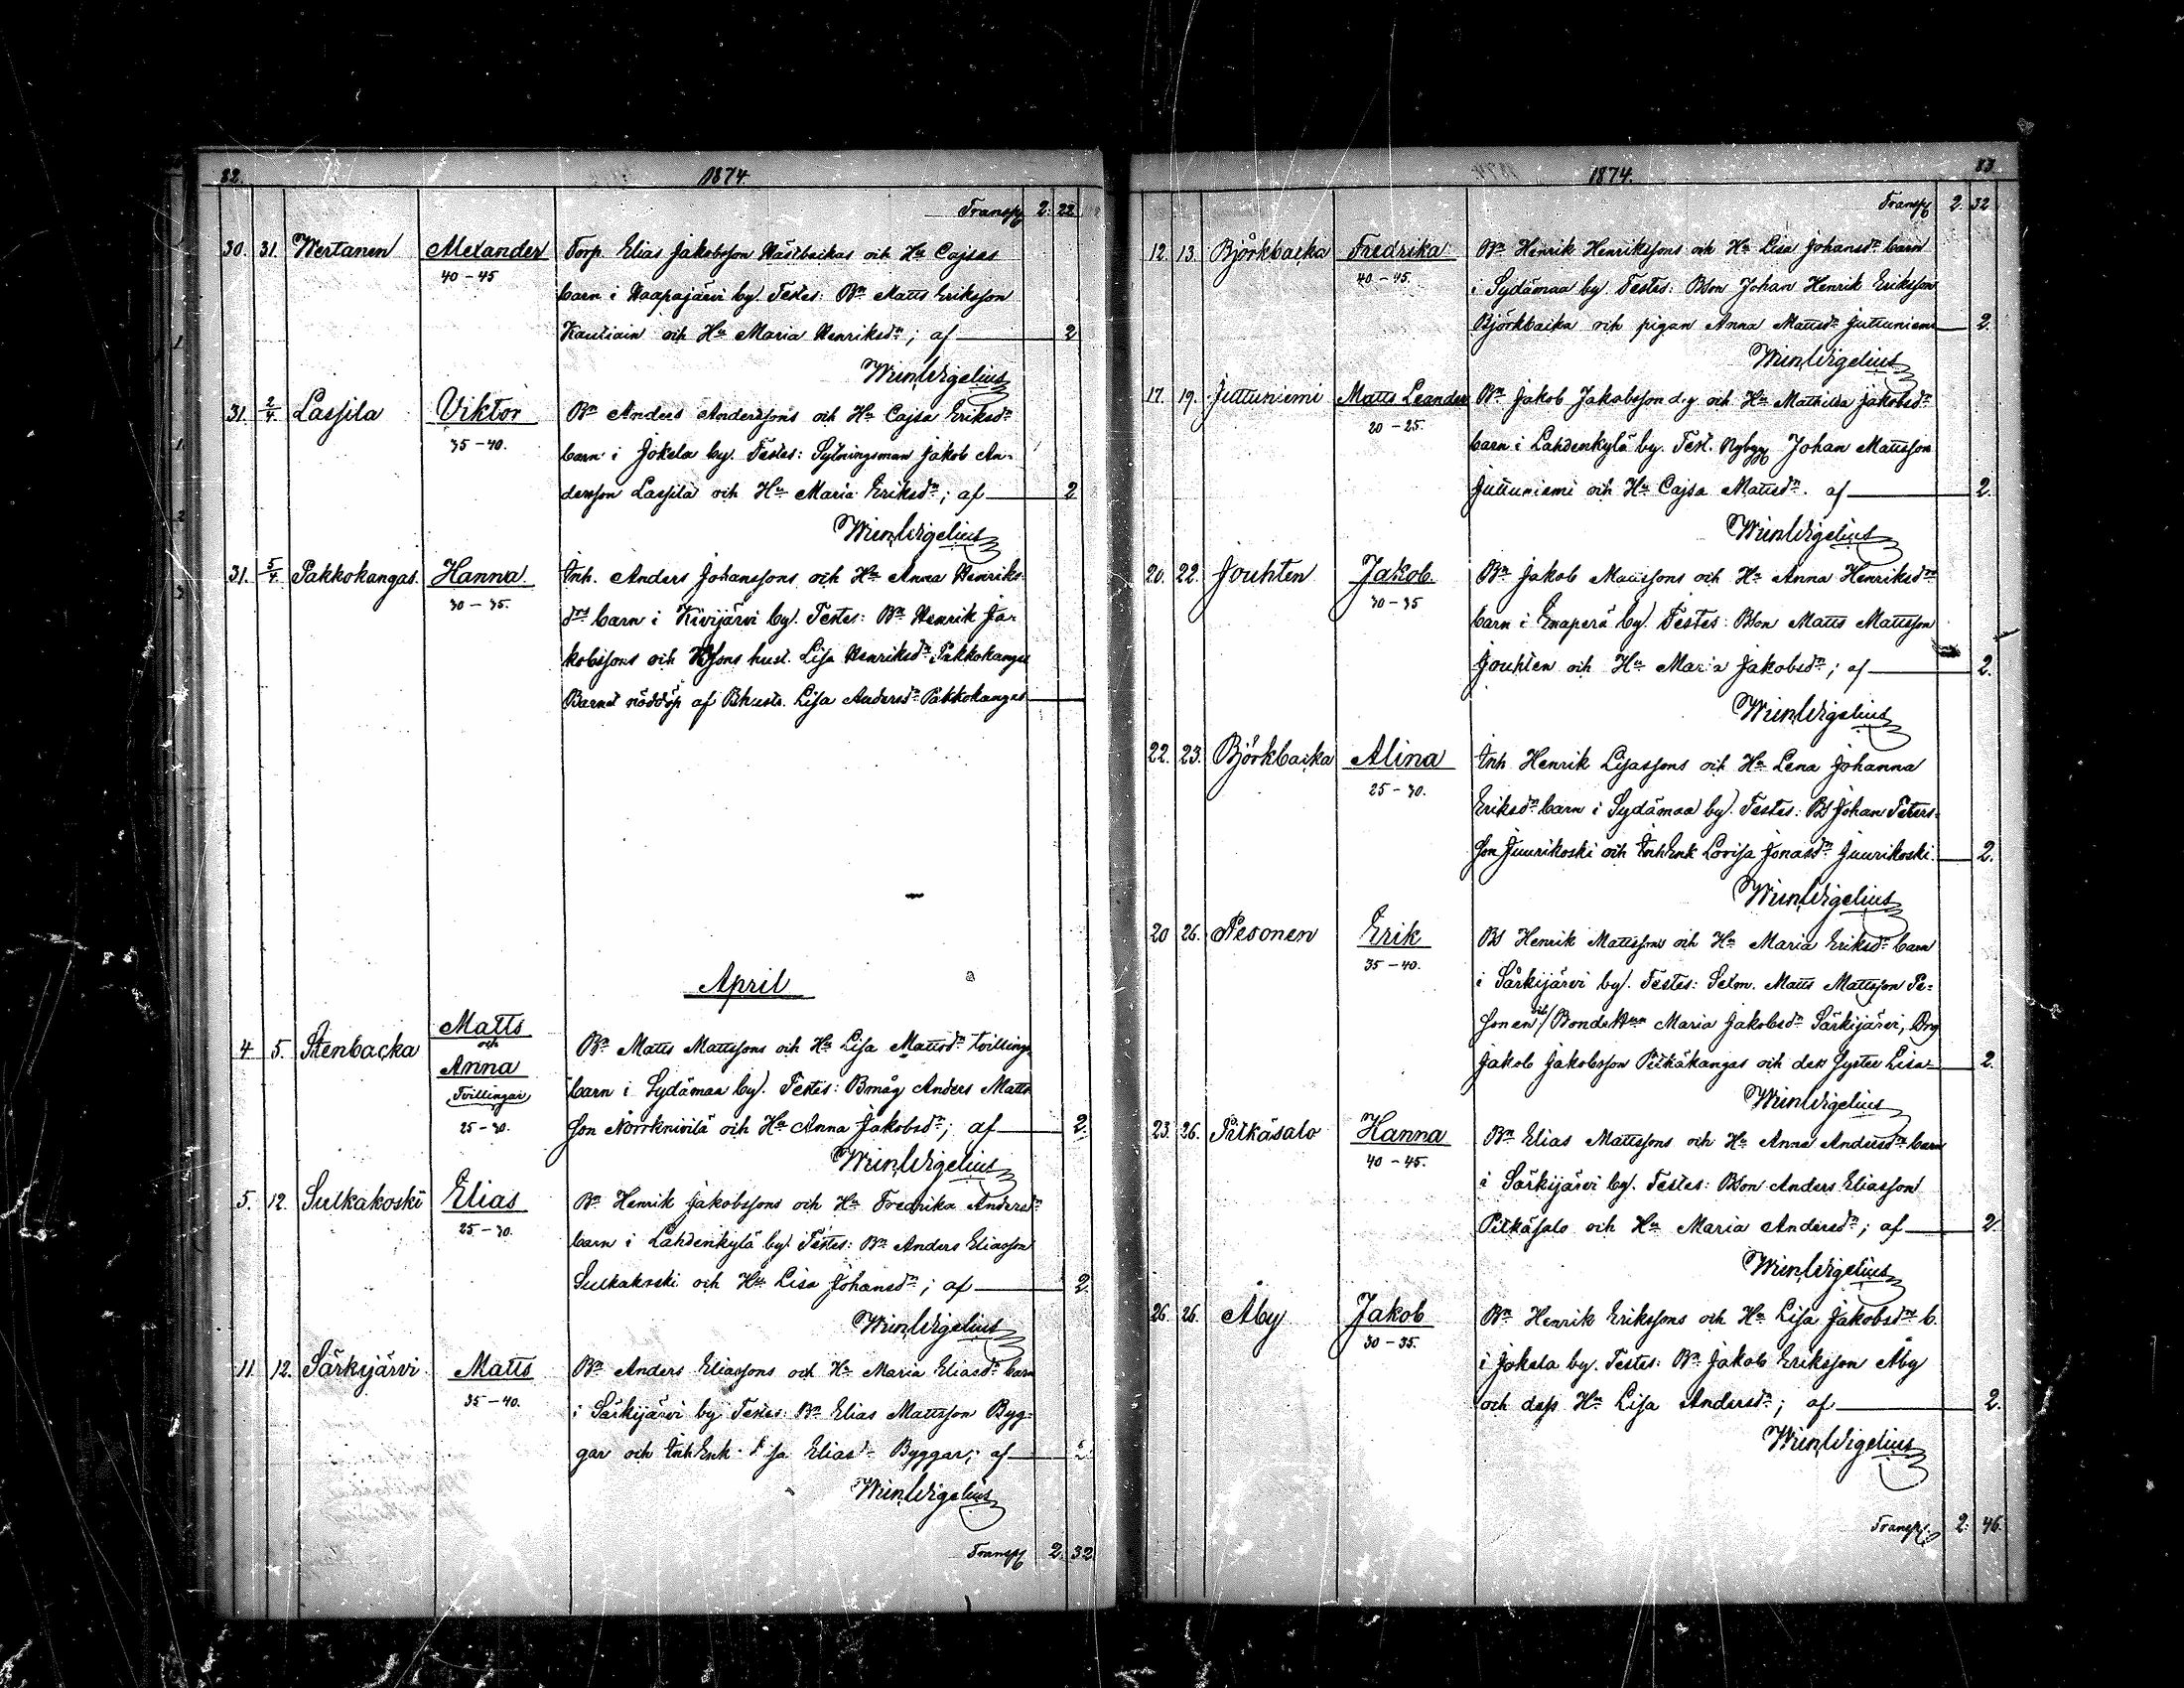 82.
1874.
Transp 2. 22
30. 31. Wertanen Alexander Torp. Elias Jakobsson Hästbackas och Hu Cajsas
40-45 barn i Haapajärvi by. Testes: Bn Matts Eriksson
Kautiain och Hu Maria Henriksdr; af 2
Wm Wigelius
31. 2/4. Lassila Viktor Bn Anders Anderssons och Hu Cajsa Eriksdr
35-40. barn i Jokela by. Testes: Sytningsman Jakob An-
dersson Lassila och Hu Maria Eriksdr; af 2
Wm Wigelius
31. 5/4 Pakkokangas. Hanna Inh. Anders Johanssons och Hu Anna Henriks-
30-35. drs barn i Kivijärvi by. Testes: Bn Henrik Ja-
kobssons och hust. Lisa Henriksdr Pakkokangas
Barnet nöddöp af Bhustr. Lisa Andersdr Pakkokangas
April
4. 5. Stenbacka Matts
och
Anna
Tvillingar
25-30.
Bn Matts Mattssons och Hu Lisa Mattsdr tvilling
barn i Sydämaa by. Testes: Bmåg Anders Matts
son Norrknivilä och Hu Anna Jakobsdr; af 2.
Wm Wigelius
5. 12. Sulkakoski Elias Bn Henrik Jakobssons och Hu Fredrika Andersdr
25-30. barn i Lahdenkylä by. Testes: Bn Anders Eliasson
Sulkakoski och Hu Lisa Johansdr; af 2.
Wm Wigelius
11. 12. Särkijärvi Matts Bn Anders Eliassons och Hu Maria Eliasdr barn
35-40. i Särkijärvi by Testes: Bn Elias Mattsson Byg-
gar och Inh Enk. Lisa Eliasd Byggar; af 2
Wm Wigelius
Transp 2. 32
83
1874.
Transp 2. 32
12. 13. Björkbacka Fredrika Bn Henrik Henrikssons och Hu Lisa Johansdr barn
40-45. i Sydämaa by. Testes: Bson Johan Henrik Eriksson
Björkbacka och pigan Anna Mattsdr Juttuniemi 2.
Wm Wigelius
17. 19. Juttuniemi Matts Leander Bn Jakob Jakobsson d.y. och Hu Mathilda Jakobsdr
20-25. barn i Lahdenkylä by. Test. Nybygg Johan Mattsson
Juttuniemi och Hu Cajsa Mattsdr. af 2.
Wm Wigelius
20. 22. Jouhten Jakob Bn Jakob Mattssons och Hu Anna Henriksdrs
30-35 barn i Enaperä by. Testes: Bson Matts Mattsson
Jouhten och Hu Maria Jakobsdr; af 2.
Wm Wigelius
22. 23. Björkbacka Alina Inh Henrik Lisassons och Hu Lena Johanna
25-30. Eriksdr barn i Sydämaa by. Testes: Bs Johan Peters-
son Juurikoski och Inh Enk Lovisa Jonasdr Juurikoski. 2.
Wm Wigelius
20 26. Pesonen Erik Bs Henrik Mattssons och Hu Maria Eriksdr barn
35-40. i Särkijärvi by. Testes: Sexm. Matts Mattsson Pe-
sonen och Bonde Hun Maria Jakobsdr Särkijärvi, Dng
Jakob Jakobsson Pitkäkangas och dess syster Lisa 2.
Wm Wigelius
23. 26. Pitkäsalo Hanna Bn Elias Mattssons och Hu Anna Andersdr barn
40-45. i Särkijärvi by. Testes: Bson Anders Eliasson
Pitkäsalo och Hu Maria Andersdr; af 2.
Wm Wigelius
26. 26. Åby Jakob Bn Henrik Erikssons och Hu Lisa Jakobsdrs b.
30-35. i Jokela by. Testes: Bn Jakob Eriksson Åby
och dess Hu Lisa Andersdr; af 2.
Wm Wigelius
Transp. 2. 46.